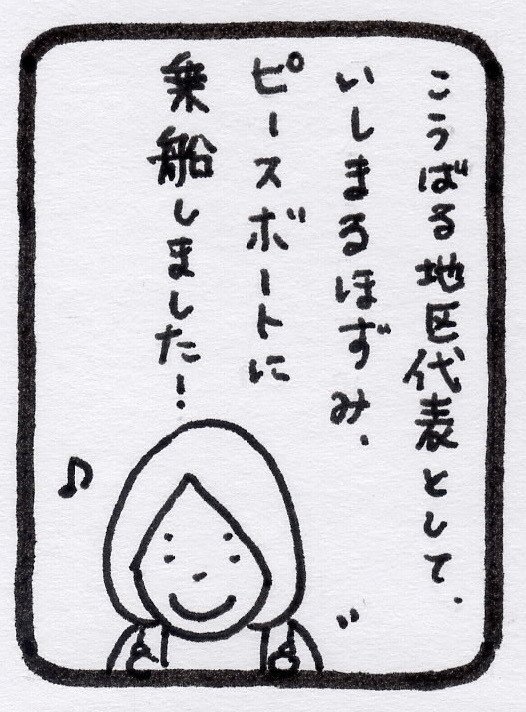 こうばる地区代表として、
いしまるほずみ、
ピースボートに
乗船しました!